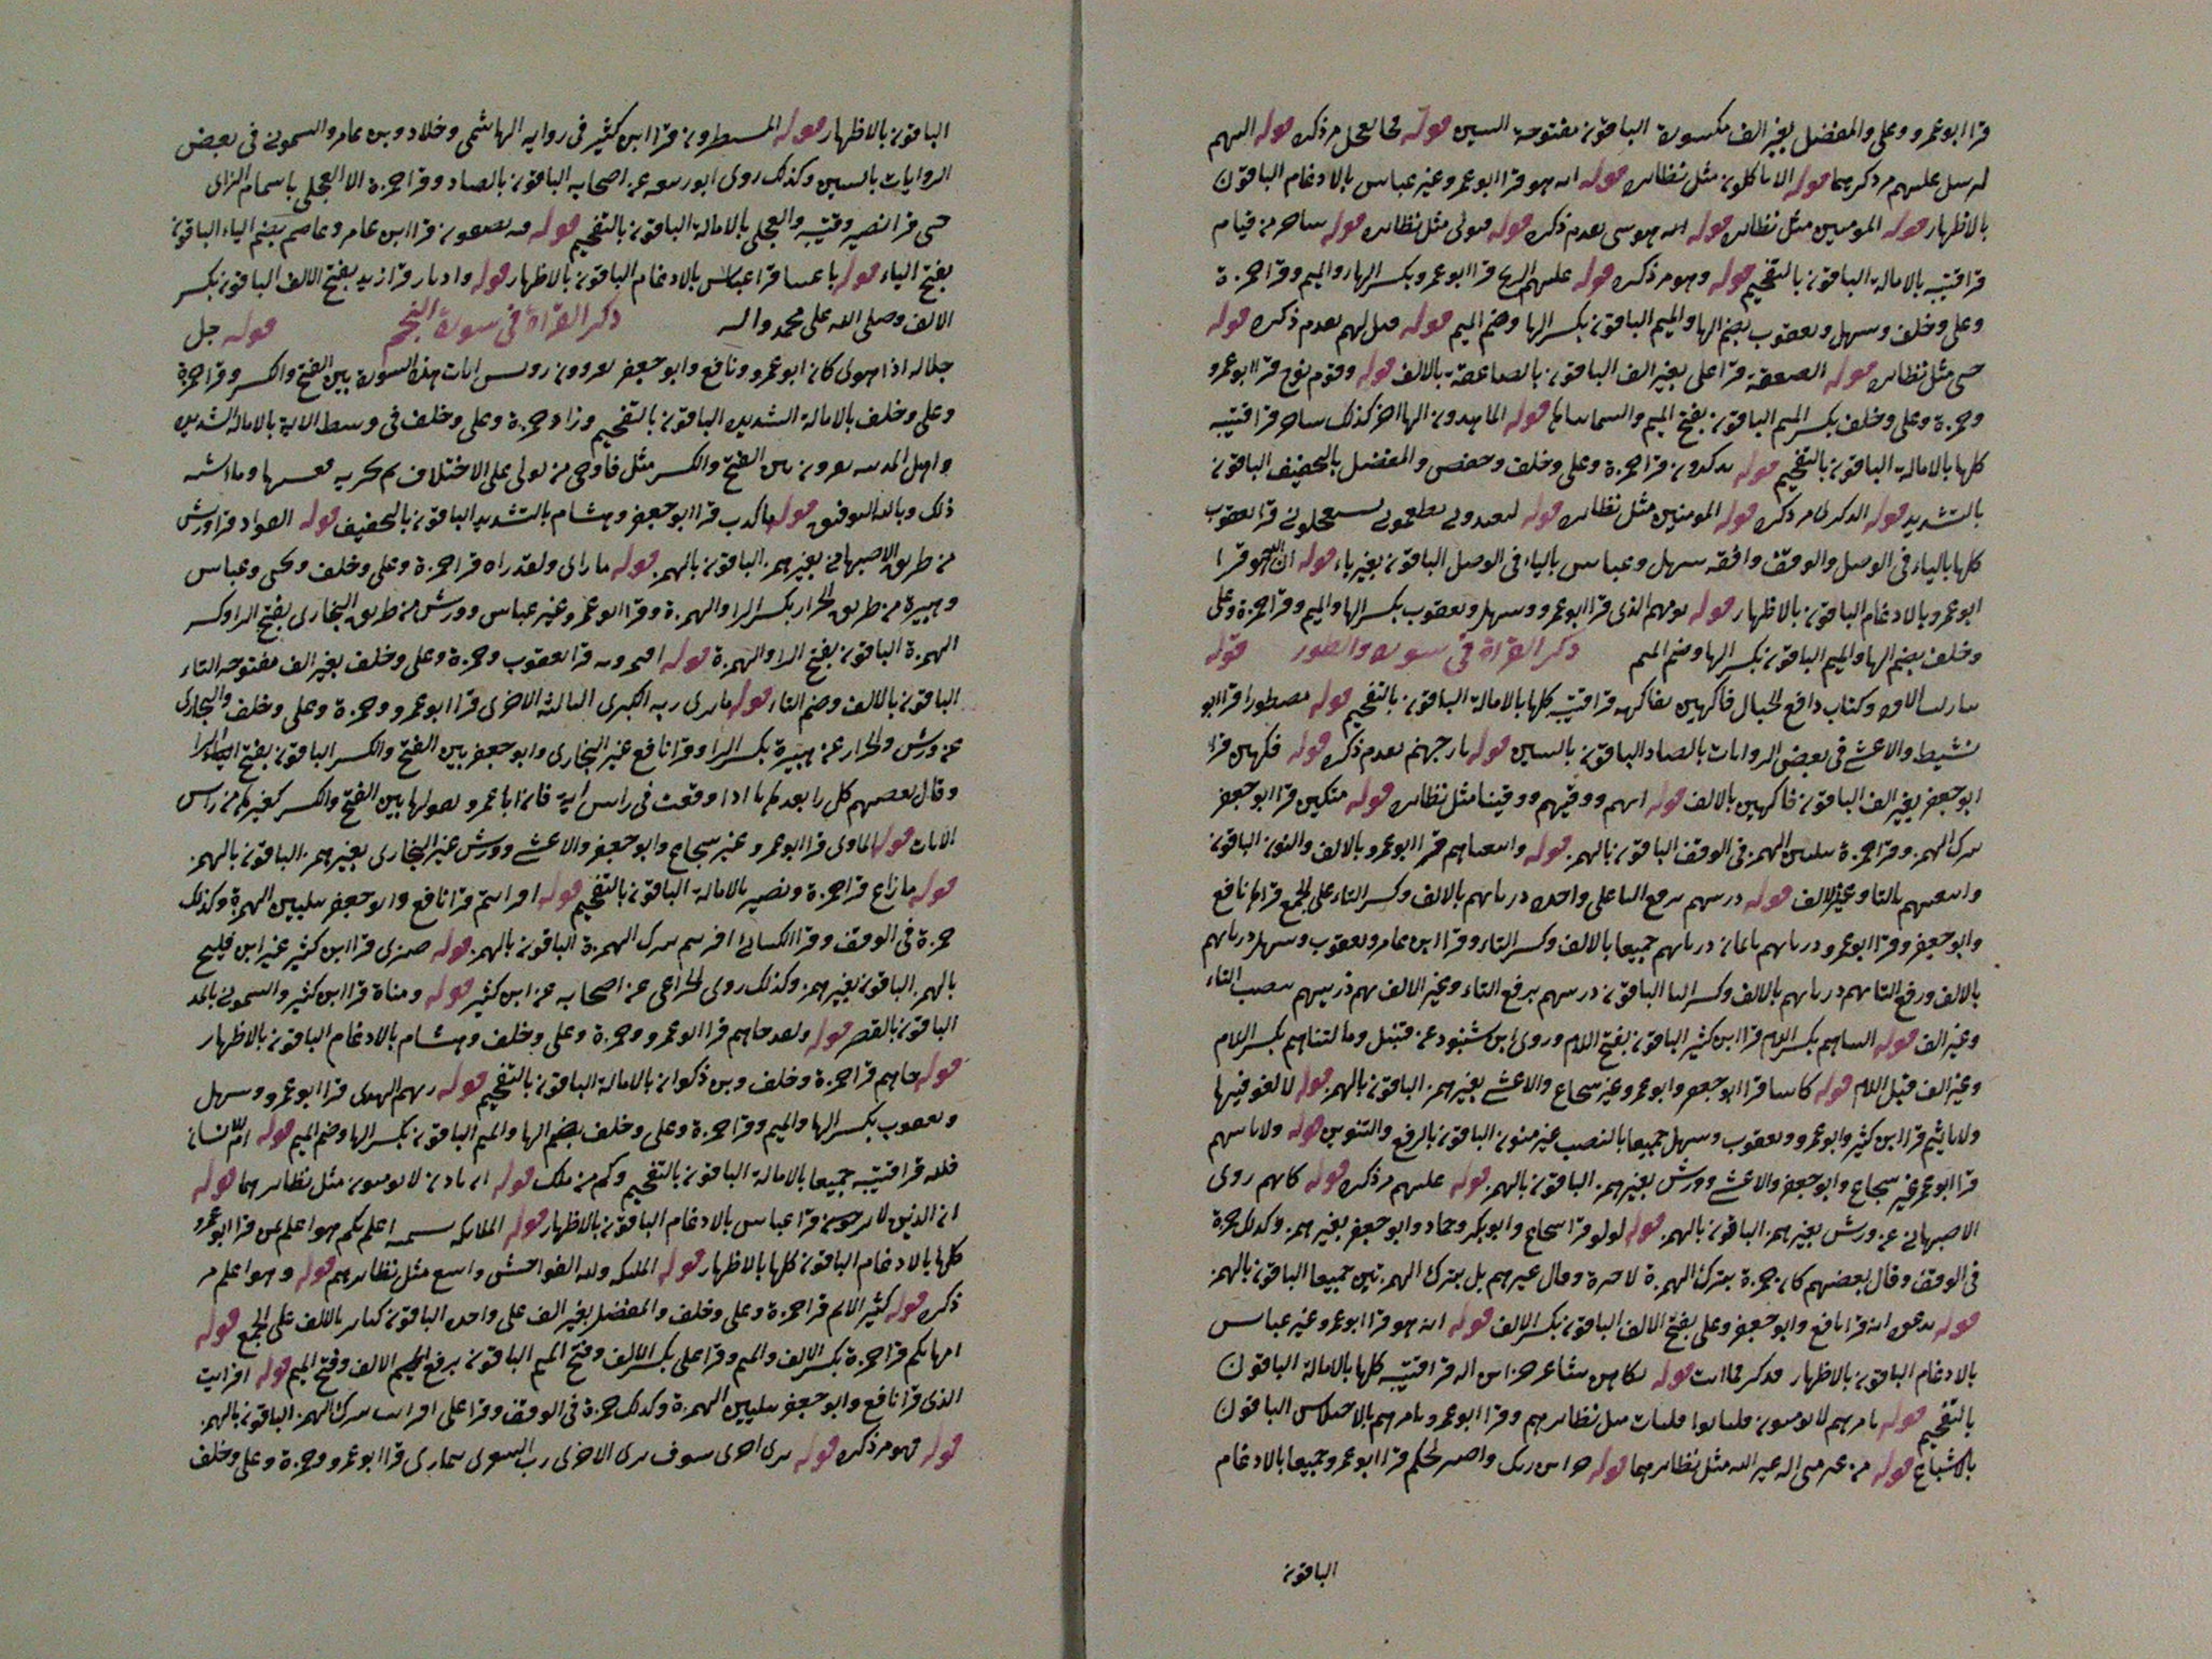 قرا ابو عمرو وعلى والمفضل بغير الف مكسورة الباقون مفتوحة السين قوله مر ذكره قوله اليهم
عليهم مر ذكرهما قوله الا تاكلون مثل نظائره قوله انه هو قرا ابو عمرو وغير عباس بالادغام الباقون
بالاظهار قوله المومنين مثل نظائره قوله تقدم ذكره قوله فتولى مثل نظائره قوله من قيام
قرا قتيبه بالامالة الباقون بالتفخيم قوله وهو مر ذكره قوله عليهم الريح قرا ابو عمرو بكسر الها والميم وقرا حمزة
وعلى وخلف وسهل ويعقوب بضم الها والميم الباقون بكسر الها وضم الميم قوله قيل لهم تقدم ذكره قوله
حتى مثل نظائره قوله الصعقة قرا على بغير الف الباقون بالصاعقة بالالف قوله وقوم نوح قرا ابو عمرو
وحمزة وعلى وخلف بكسر الميم الباقون بفتح الميم والسما قوله الماهدون قرا قتيبه
كلها بالامالة الباقون بالتفخيم قوله تذكرون قرا حمزة وعلى وخلف وحفص والمفضل بالتخفيف الباقون
بالتشديد قوله الذكرى مر ذكره قوله المومنين مثل نظائره قوله ليعبدونى يطعمونى يستعجلونى قرا يعقوب
كلها بالياء فى الوصل والوقف وافقه سهل وعباس بالياء فى الوصل الباقون بغير ياء قوله ان الله هو قرا
ابو عمرو بالادغام الباقون بالاظهار قوله يومهم الذى قرا ابو عمرو وسهل ويعقوب بكسر الها والميم وقرا حمزة وعلى
وخلف بضم الها والميم الباقون بكسر الها وضم الميم ذكر القراة فى سورة والطور قوله
وكتاب دافع الجبال فاكهين بفاكهه قرا قتيبه كلها بالامالة الباقون بالتفخيم قوله مصطورا قرا ابو
نشيط والاعشى فى بعض الروايات بالصاد الباقون بالسين قوله نار جهنم تقدم ذكره قوله فكهين قرا
ابو جعفر بغير الف الباقون فاكهين بالالف قوله اتيهم ووقيهم ووقينا مثل نظائره قوله متكين قرا ابو جعفر
بترك الهمز وقرا حمزة بتليين الهمز فى الوقف الباقون بالهمز قوله واتبعناهم قرا ابو عمرو بالالف والنون الباقون
واتبعتهم بالتا وغير الالف قوله ذريتهم برفع التا على واحده ذرياتهم بالالف وكسر التاء على الجمع قراها نافع
وابو جعفر وقرا ابو عمرو ذرياتهم بايمان ذرياتهم جميعا بالالف وكسر التاء وقرا ابن عامر ويعقوب وسهل ذرياتهم
بالالف ورفع التا بهم ذرياتهم بالالف وكسر التا الباقون ذريتهم برفع التاء وغير الالف بهم ذريتهم بنصب التاء
وغير الف قوله التناهم بكسر اللام قرا ابن كثير الباقون بفتح اللام وروى ابن شنبوذ عن قنبل وما لتناهم بكسر اللام
وغير الف قبل اللام قوله كاسا قرا ابو جعفر وابو عمرو غير شجاع والاعشى بغير همز الباقون بالهمز قوله لا لغو فيها
ولا تاثيم قرا ابن كثير وابو عمرو ويعقوب وسهل جميعا بالنصب غير منون الباقون بالرفع والتنوين قوله
قرا ابو عمرو غير شجاع وابو جعفر والاعشى وورش بغير همز الباقون بالهمز قوله عليهم مر ذكره قوله كانهم روى
الاصبهانى عن ورش بغير همز الباقون بالهمز قوله لولو قرا شجاع وابو بكر وحماد وابو جعفر بغير همز وكذلك حمزة
فى الوقف وقال بعضهم كان حمزة بترك الهمزة الاخيرة وقال غيرهم بل بترك الهمزتين جميعا الباقون بالهمز
قوله ندعوه انه قرا نافع وابو جعفر وعلى بفتح الالف الباقون بكسر الالف قوله انه هو قرا ابو عمرو غير عباس
بالادغام الباقون بالاظهار قوله بكاهن شاعر اله قرا قتيبه كلها بالامالة الباقون
بالتفخيم قوله تامرهم لا يومنون فلياتوا فليات مثل نظائرهم وقرا ابو عمرو تامرهم بالاختلاس الباقون
بالاشباع قوله اله غير الله مثل نظائرهما قوله خزاين ربك واصبر لحكم قرا ابو عمرو جميعا بالادغام
الباقون
الباقون بالاظهار قوله المسيطرون قرا ابن كثير فى رواية الهاشمى وخلاد وبن عامر والسمونى فى بعض
الروايات بالسين وكذلك روى ابو ربيعه عن اصحابه الباقون بالصاد وقرا حمزة الا العجلى باشمام الزاى
حتى قرا نصير وقتيبه والعجلى بالامالة الباقون بالتفخيم قوله فيه يصعقون قرا ابن عامر وعاصم بضم الياء الباقون
بفتح الياء قوله باعيننا قرا عباس بالادغام الباقون بالاظهار قوله وادبار قرا زيد بفتح الالف الباقون بكسر
الالف وصلى الله على محمد واله ذكر القراة فى سورة النجم قوله جل
جلاله اذا هوى كان ابو عمرو ونافع وابو جعفر يقروون روس ايات هذه السورة بين الفتح والكسر وقرا حمزة
وعلى وخلف بالامالة الشديده الباقون بالتفخيم وزاد حمزة وعلى وخلف فى وسط الاية بالامالة الشديده
واهل المدينه يقروون بين الفتح والكسر مثل فاوحى من تولى على الاختلاف وما اشبه
ذلك وبالله التوفيق قوله ما كذب قرا ابو جعفر وهشام بالتشديد الباقون بالتخفيف قوله الفواد قرا ورش
من طريق الاصبهانى بغير همز الباقون بالهمز قوله ما راى ولقد راه قرا حمزة وعلى وخلف ويحيى وعباس
وهبيرة من طريق الخزاز بكسر الرا والهمزة وقرا ابو عمرو غير عباس وورش من طريق البخارى بفتح الرا وكسر
الهمزة الباقون بفتح الرا والهمزة قوله افتمرونه قرا يعقوب وحمزة وعلى وخلف بغير الف مفتوحه التاء
الباقون بالالف وضم التاء قوله ربه الكبرى الثالثة الاخرى قرا ابو عمرو وحمزة وعلى وخلف والبخارى
عن ورش والخزاز عن هبيرة بكسر الرا وقرا نافع غير البخارى وابو جعفر بين الفتح والكسر الباقون بفتح الرا
وقال بعضهم كل را بعدها يا اذا وقعت فى راس اية فان ابا عمرو يقولها بين الفتح والكسر كغيرها من راس
الايات قوله الماوى قرا ابو عمرو غير شجاع وابو جعفر والاعشى وورش غير البخارى بغير همز الباقون بالهمز
قوله ما زاغ قرا حمزة ونصير بالامالة الباقون بالتفخيم قوله افرايتم قرا نافع وابو جعفر بتليين الهمزة وكذلك
حمزة فى الوقف وقرا الكسائى افريتم بترك الهمزة الباقون بالهمز قوله ضئزى قرا ابن كثير غير ابن فليح
بالهمز الباقون بغير همز وكذلك روى الخزاعى عن اصحابه عن ابن كثير قوله ومناة قرا ابن كثير والسمونى بالمد
الباقون بالقصر قوله ولقد جاهم قرا ابو عمرو وحمزة وعلى وخلف وهشام بالادغام الباقون بالاظهار
قوله جاهم قرا حمزة وخلف وبن ذكوان بالامالة الباقون بالتفخيم قوله ربهم الهدى قرا ابو عمرو وسهل
ويعقوب بكسر الها والميم وقرا حمزة وعلى وخلف بضم الها والميم الباقون بكسر الها وضم الميم قوله ام للانسان
فلله قرا قتيبه جميعا بالامالة الباقون بالتفخيم وكم من ملك قوله لا يومنون مثل نظائرهما قوله
ان الذين لا قرا عباس بالادغام الباقون بالاظهار قوله الملايكه تسميه اعلم بكم هو اعلم بمن قرا ابو عمرو
كلها بالادغام الباقون كلها بالاظهار قوله الملئكه ولله الفواحش واسع مثل نظائرهم قوله وهو اعلم مر
ذكره قوله كثير الاثم قرا حمزة وعلى وخلف والمفضل بغير الف على واحده الباقون كبائر بالالف على الجمع قوله
امهاتكم قرا حمزة بكسر الالف والميم وقرا على بكسر الالف وفتح الميم الباقون برفع الالف وفتح الميم قوله افرايت
الذى قرا نافع وابو جعفر بتليين الهمزة وكذلك حمزة فى الوقف وقرا على افرايت بترك الهمز الباقون بالهمز
قوله فهو مر ذكره قوله يرى اخرى سوف يرى الاخرى رب الشعرى تتمارى قرا ابو عمرو وحمزة وعلى وخلف